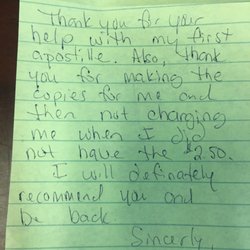 Thank you for your
help with my first
apostille. Also, thank
you for making the
copies for me and
then not charging
me when I did
not have the $2.50.
I will definately
recommend you and
be back
Sincerly,